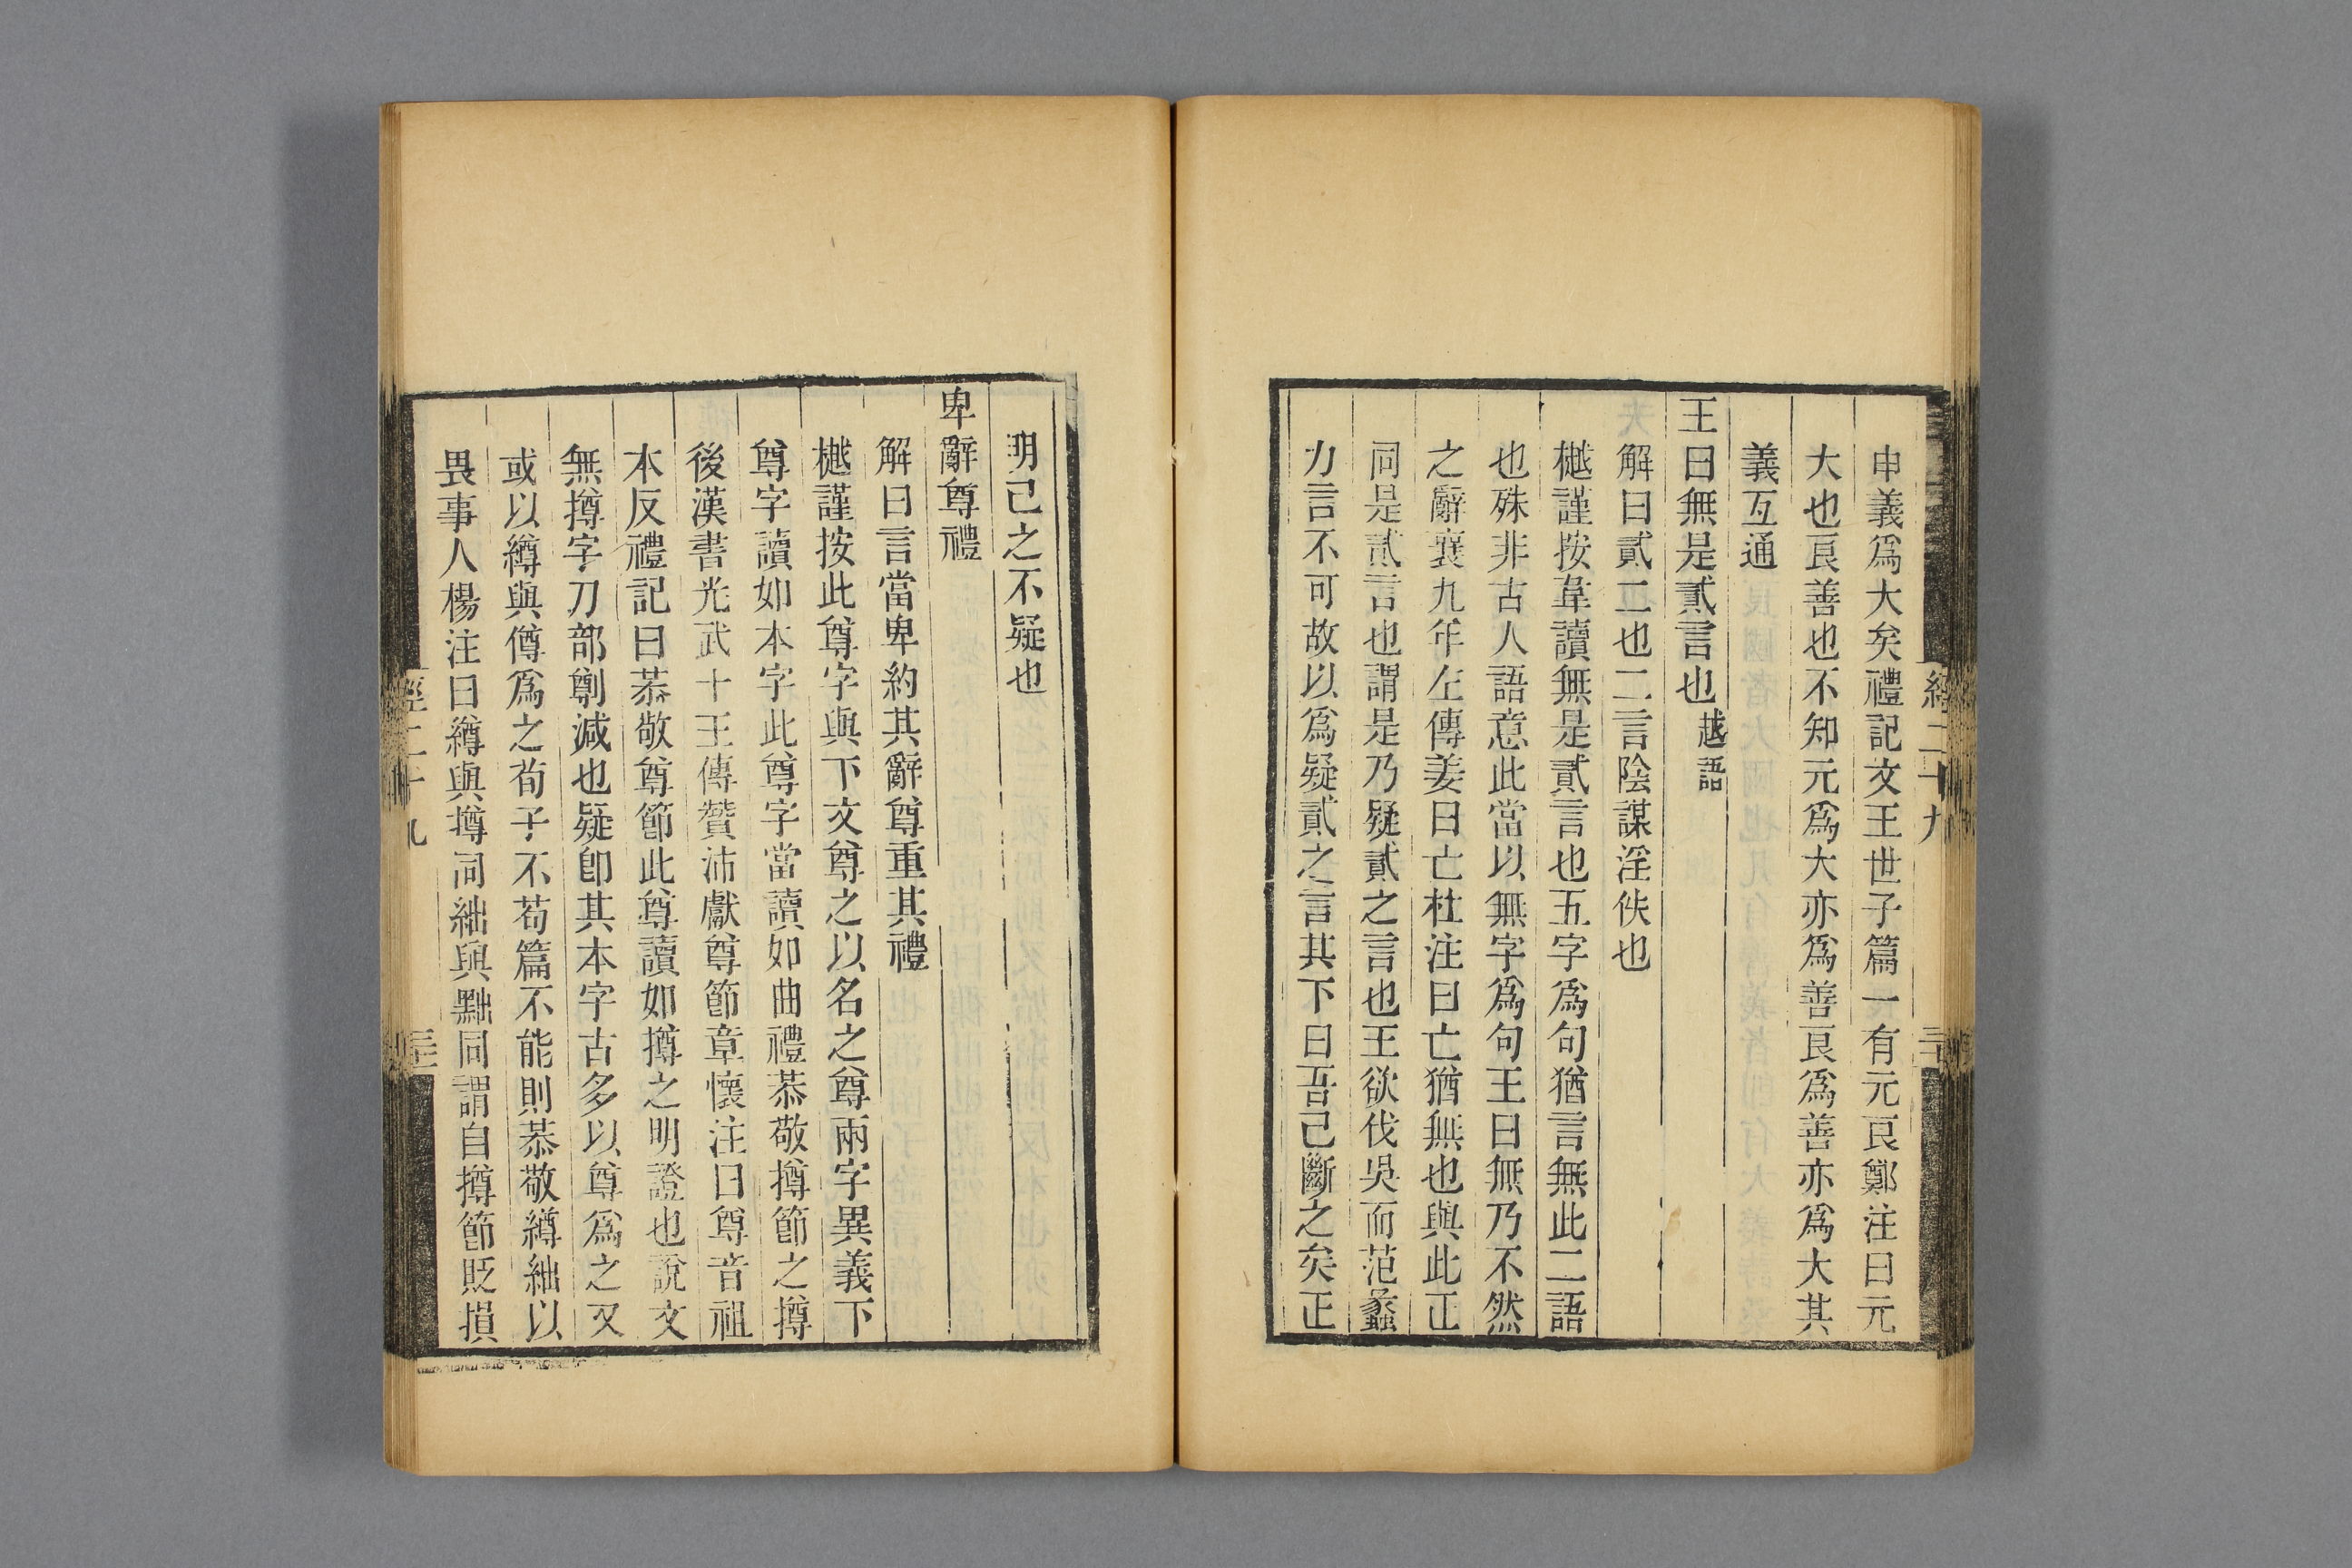 申義爲大矣禮記文王世子篇一有元良鄭注曰元
大也良善也不知元爲大亦爲善良爲善亦爲大其
義互通
王曰無是貳言也越語
解曰貳二也二言陰謀淫佚也
樾謹按韋讀無是貳言也五字爲句猶言無此二語
也殊非古人語意此當以無字爲句王曰無乃不然
之辭襄九年左傳姜曰亡杜注曰亡猶無也與此正
同是貳言也謂是乃疑貳之言也王欲伐吳而范蠡
力言不可故以爲疑貳之言其下曰吾已斷之矣正
明己之不疑也
卑辭尊禮
解曰言當卑約其辭尊重其禮
樾謹按此尊字與下文尊之以名之尊兩字異義下
尊字讀如本字此尊字當讀如曲禮恭敬撙節之撙
後漢書光武十王傳贊沛獻尊節章懷注曰尊音祖
本反禮記曰恭敬尊節此尊讀如撙之明證也說文
無撙字刀部劕減也疑卽其本字古多以尊爲之又
或以繜與僔爲之荀子不苟篇不能則恭敬繜絀以
畏事人楊注曰繜與撙同絀與黜同謂自撙節貶損
經二十九
經二十九